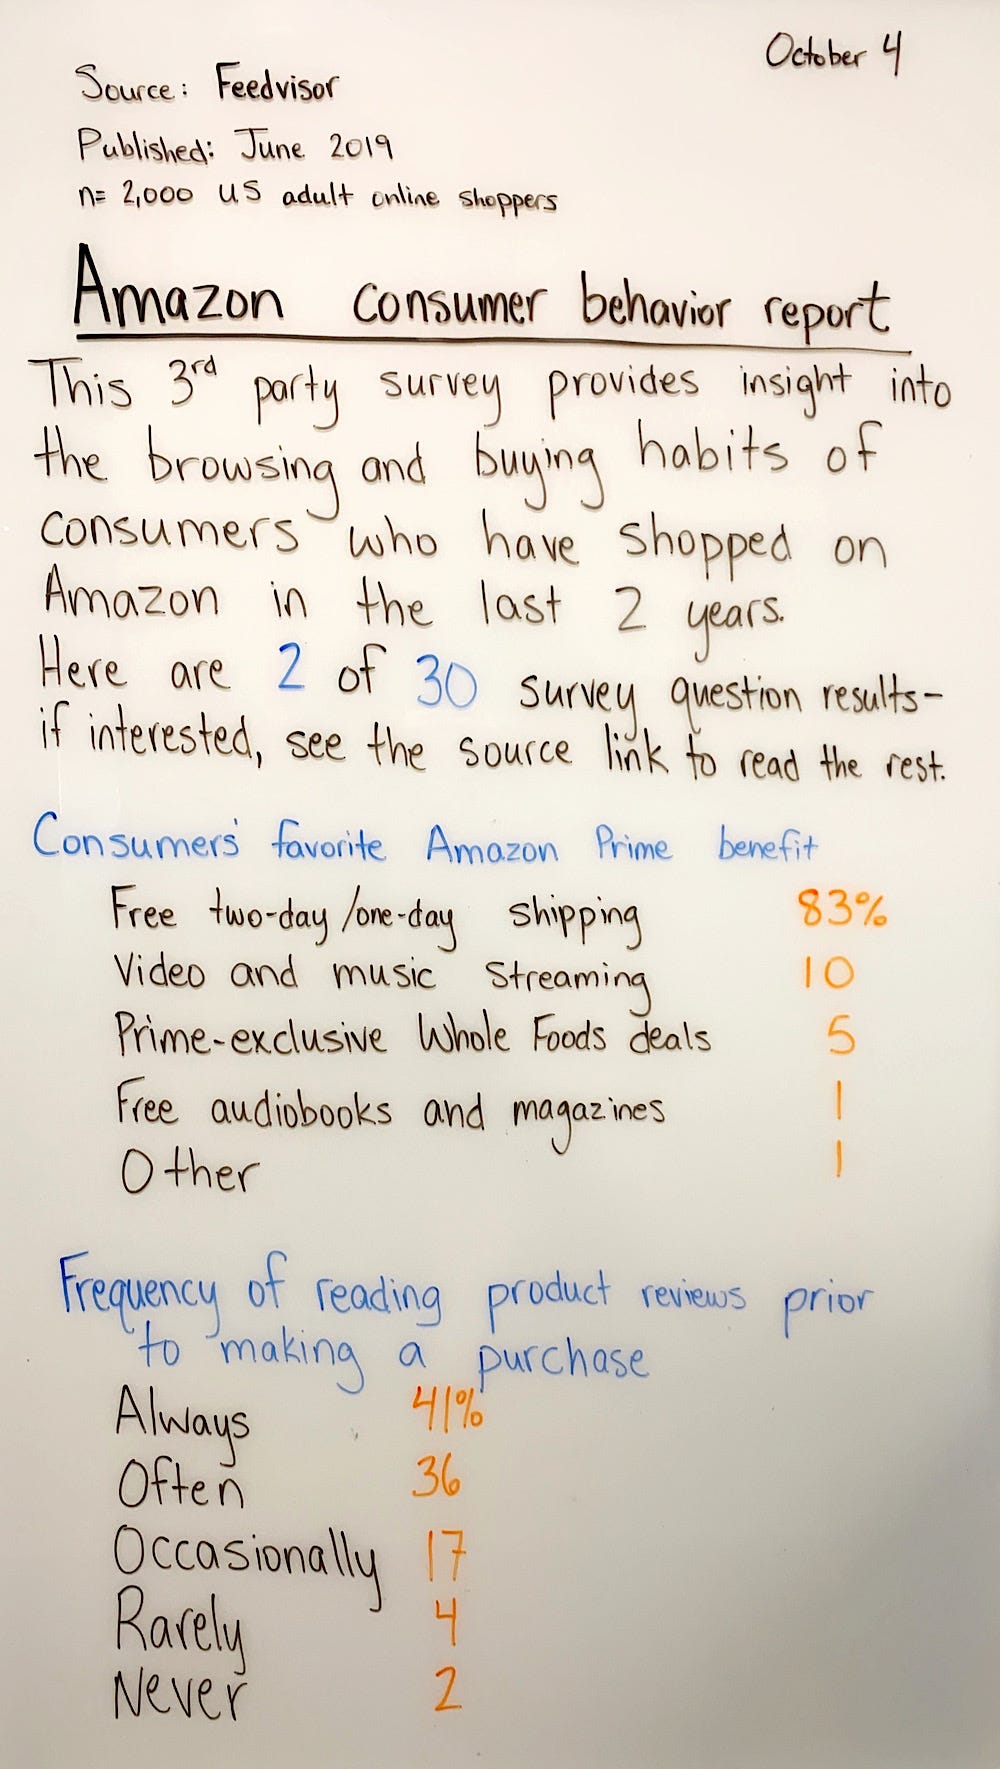 October 4
Source: Feedvisor
Published: June 2019
n= 2,000 US adult online shoppers
Amazon consumer behavior report
This 3rd party survey provides insight into
the browsing and buying habits of
consumers who have shopped on
Amazon in the last 2 years.
Here are 2 of 30 survey question results-
if interested, see the source link to read the rest.
Consumers' favorite Amazon Prime benefit
Free two-day/one-day shipping 83%
Video and music streaming 10
Prime-exclusive Whole Foods deals 5
Free audiobooks and magazines 1
Other 1
Frequency of reading product reviews prior
to making a purchase
Always 41%
Often 36
Occasionally 17
Rarely 4
Never 2